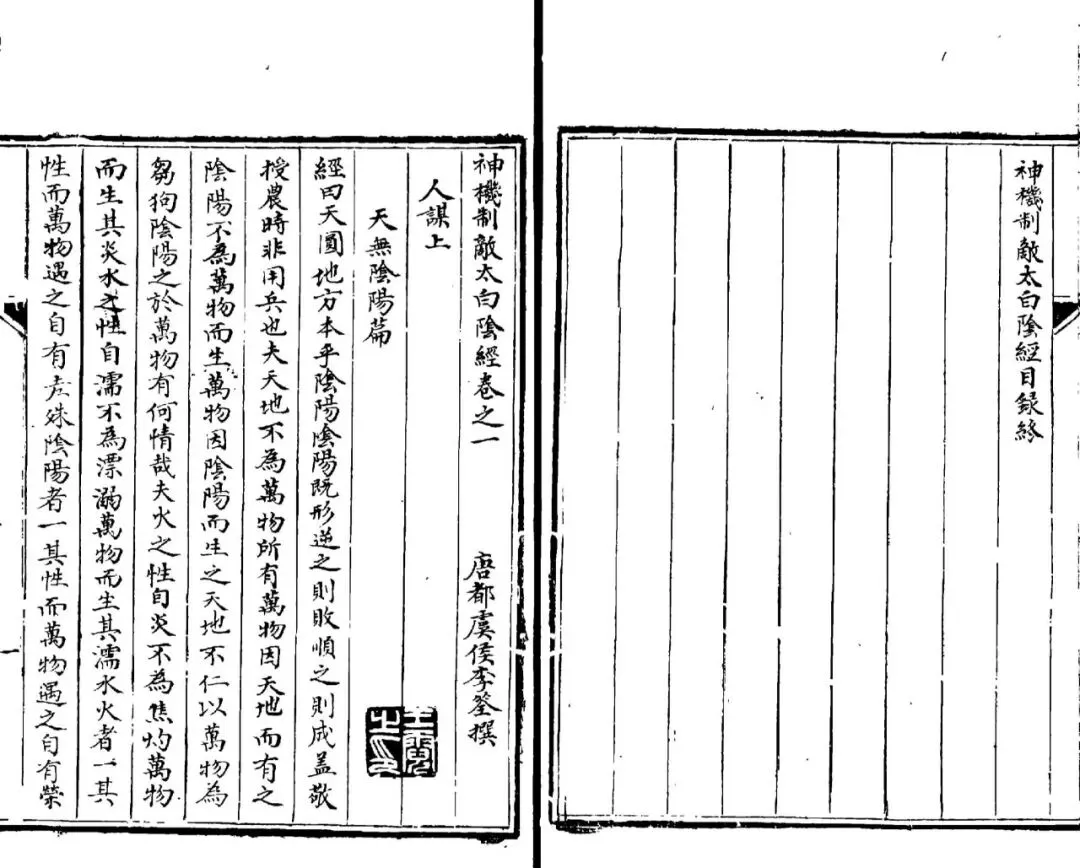 神機制敵太白陰經目録終
神機制敵太白陰經卷之一 唐都虞侯李筌撰
人謀上
天無陰陽篇
經曰天圓地方本乎陰陽陰陽既形逆之則敗順之則成盖敬
授農時非用兵也夫天地不為萬物所有萬物因天地而有之
陰陽不為萬物而生萬物因陰陽而生之天地不仁以萬物為
芻狗陰陽之於萬物有何情哉夫火之性自炎不為焦灼萬物
而生其炎水之性自濡不為漂溺萬物而生其濡水火者一其
性而萬物遇之自有差殊陰陽者一其性而萬物遇之自有榮
一